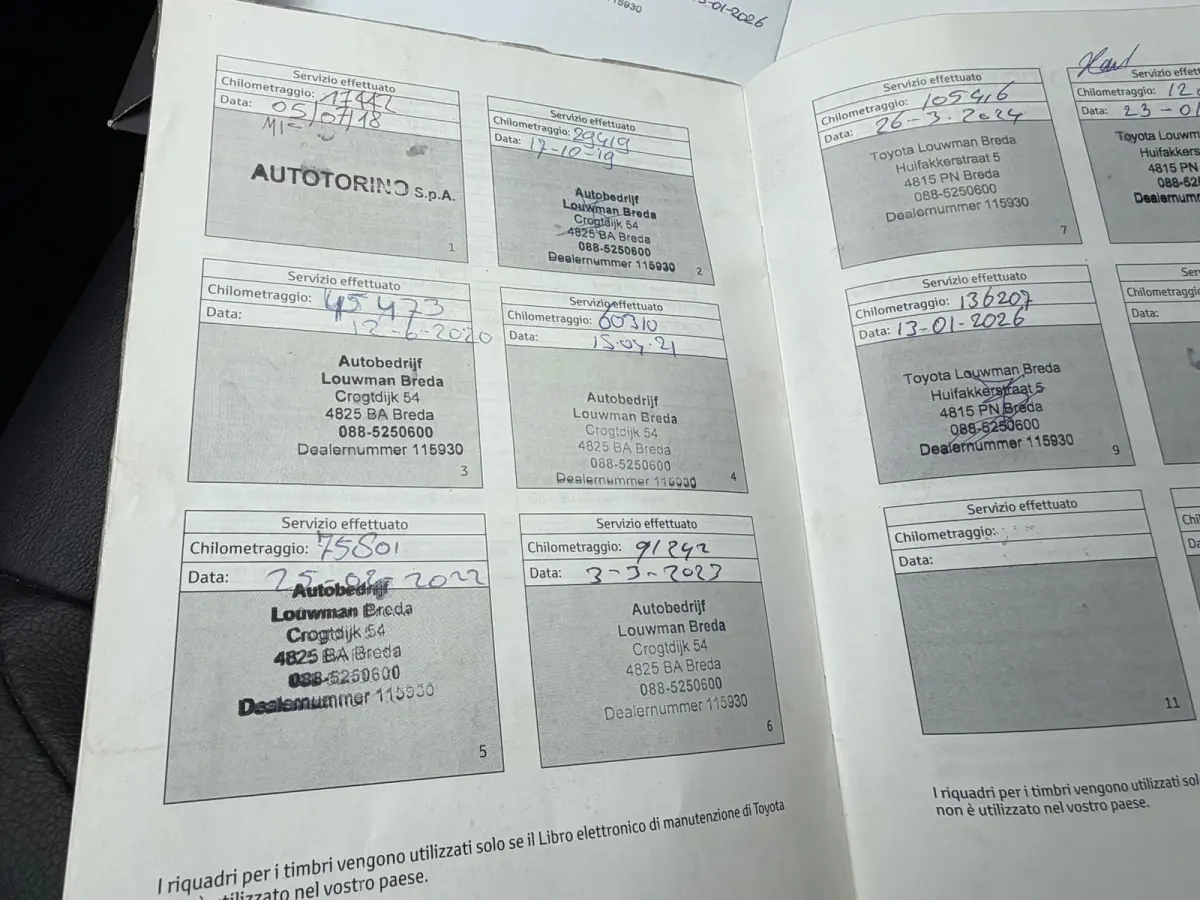 115930
-01-2026
Servizio effettuato
Chilometraggio: 17442
Data: 05/07/18
AUTOTORINO S.p.A.
1
Servizio effettuato
Chilometraggio: 29419
Data: 17-10-19
Autobedrijf
Louwman Breda
Crogtdijk 54
4825 BA Breda
088-5250600
Dealernummer 115930
2
Servizio effettuato
Chilometraggio: 45473
Data: 12-6-2020
Autobedrijf
Louwman Breda
Crogtdijk 54
4825 BA Breda
088-5250600
Dealernummer 115930
3
Servizio effettuato
Chilometraggio: 60310
Data: 15.04.21
Autobedrijf
Louwman Breda
Crogtdijk 54
4825 BA Breda
088-5250600
Dealernummer 115930
4
Servizio effettuato
Chilometraggio: 75801
Data: 25-02-2022
Autobedrijf
Louwman Breda
Crogtdijk 54
4825 BA Breda
088-5250600
Dealernummer 115930
5
Servizio effettuato
Chilometraggio: 91242
Data: 3-3-2023
Autobedrijf
Louwman Breda
Crogtdijk 54
4825 BA Breda
088-5250600
Dealernummer 115930
6
I riquadri per i timbri vengono utilizzati solo se il Libro elettronico di manutenzione di Toyota
utilizzato nel vostro paese.
Servizio effettuato
Chilometraggio: 105416
Data: 26-3-2024
Toyota Louwman Breda
Huifakkerstraat 5
4815 PN Breda
088-5250600
Dealernummer 115930
7
Servizio effet
Chilometraggio: 12
Data: 23-01
Toyota Louwm
Huifakkers
4815 PN
088-52
Dealernumm
Servizio effettuato
Chilometraggio: 136207
Data: 13-01-2026
Toyota Louwman Breda
Huifakkerstraat 5
4815 PN Breda
088-5250600
Dealernummer 115930
9
Ser
Chilometraggio:
Data:
Servizio effettuato
Chilometraggio:
Data:
11
Chi
Da
I riquadri per i timbri vengono utilizzati sol
non è utilizzato nel vostro paese.